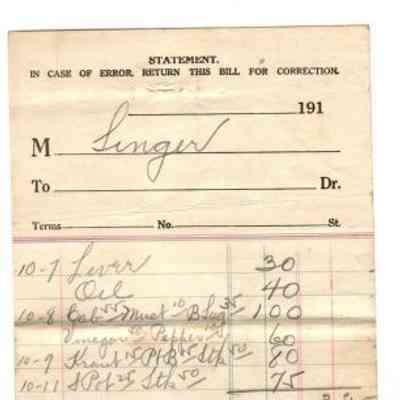 STATEMENT.
IN CASE OF ERROR, RETURN THIS BILL FOR CORRECTION.
191
M Singer
To Dr.
Terms No. St.
10-7 Liver 30
Oil 40
10-8 Cab 55 Must 10 B Sug 35 1 00
Vinegar 50 Pepper 10 60
10-9 Kraut 15 Stk 50 80
10-11 S Pot 25 Stk 50 75